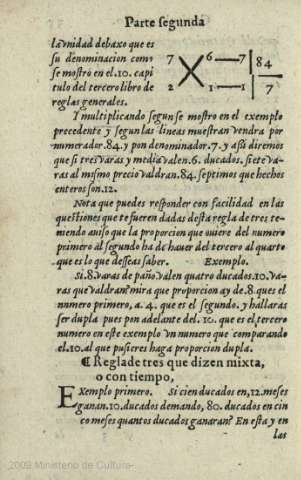 Parte segunda
la vnidad debaxo que es
su denominacion como
se mostro en el.10. capi
tulo del tercero libro de
reglas generales.
7 6 7 84
2 1 1 7
Y multiplicando segun se mostro en el exemplo
precedente y segun las lineas muestran vendra por
numerador.84.y pon denominador.7.y assi diremos
que si tres varas y media valen.6. ducados. siete va-
ras al mismo precio valdran.84. septimos que hechos
enteros son.12.
Nota que puedes responder con facilidad en las
questiones que te fueren dadas desta regla de tres te-
niendo auiso que la proporcion que ouiere del numero
primero al segundo ha de hauer del tercero al quarto
que es lo que desseas saber. Exemplo.
Si.8.varas de paño valen quatro ducados.10.va-
ras que valdran? mira que proporcion ay de.8.que es el
numero primero, a.4. que es el segundo. y hallaras
ser dupla pues pon adelante del.10. que es el tercero
numero en este exemplo vn numero que comparando
el.10.al que pusieres haga proporcion dupla.
¶ Regla de tres que dizen mixta,
o con tiempo,
Exemplo primero. Si cien ducados en,12.meses
ganan.10.ducados demando, 80. ducados en cin
co meses quantos ducados ganaran? En esta y en
las
2009 Ministerio de Cultura